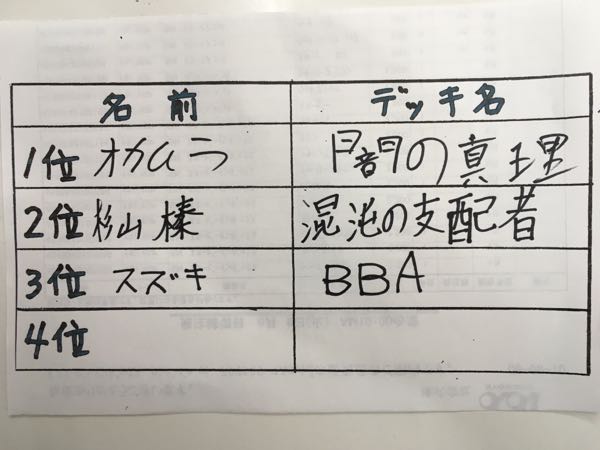 名前 デッキ名
1位 オカムラ 闇の真理
2位 杉山榛 混沌の支配者
3位 スズキ BBA
4位